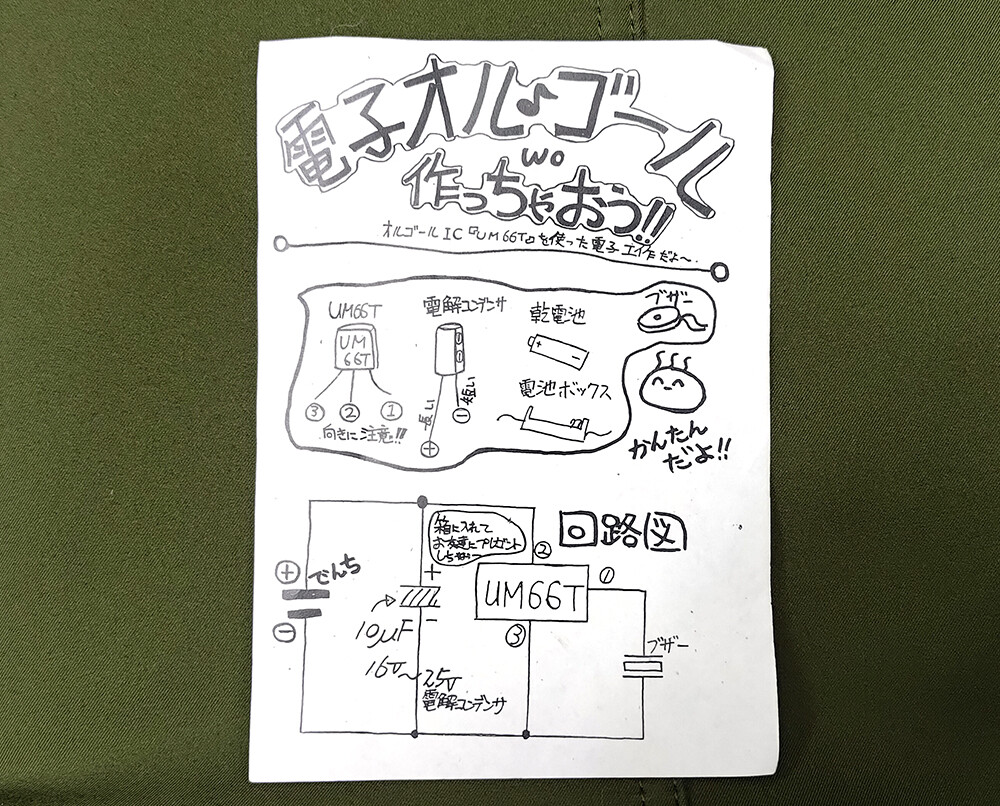 電子オル♪ゴール
wo
作っちゃおう!!
オルゴールIC『UM66T』を使った電子工作だよ〜.
UM66T
UM
66T
③ ② ①
向きに注意!!
電解コンデンサ
長い
短い
⊖
⊕
乾電池
+ −
電池ボックス
ブザー
かんたん
だよ!!
回路図
箱に入れて
お友達にプレゼント
しちゃお〜
⊕
でんち
⊖
+
−
10μF
16V〜25V
電解コンデンサ
②
UM66T
①
③
ブザー